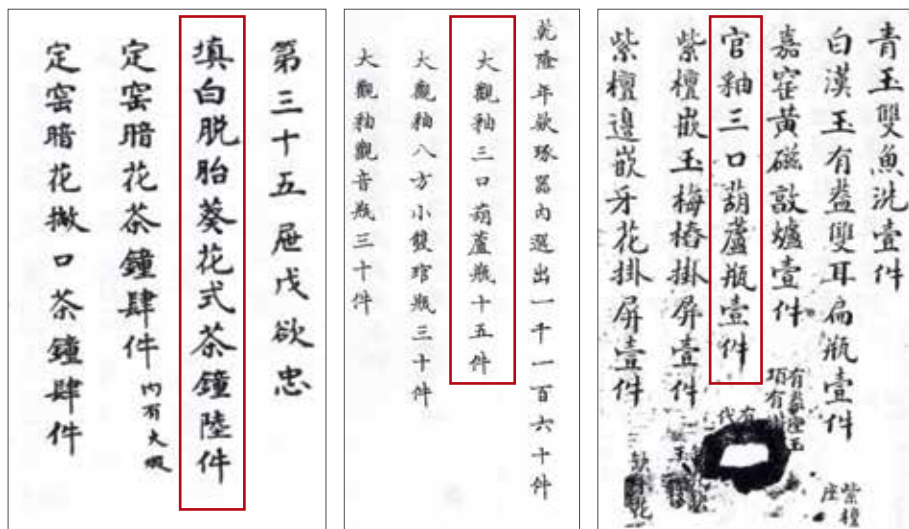 第三十五屉戊欲忠
填白脱胎葵花式茶鐘陸件
定窑暗花茶鐘肆件 内有大暇
定窑暗花撇口茶鐘肆件
乾隆年欵琢器内選出一千一百六十件
大觀釉三口葫蘆瓶十五件
大觀釉八方小雙琯瓶三十件
大觀釉觀音瓶三十件
青玉雙魚洗壹件
白漢玉有盖雙耳扁瓶壹件 紫檀座
嘉窑黄磁敔爐壹件 有
官釉三口葫蘆瓶壹件 有
紫檀嵌玉梅樁掛屏壹件
紫檀邊嵌牙花掛屏壹件